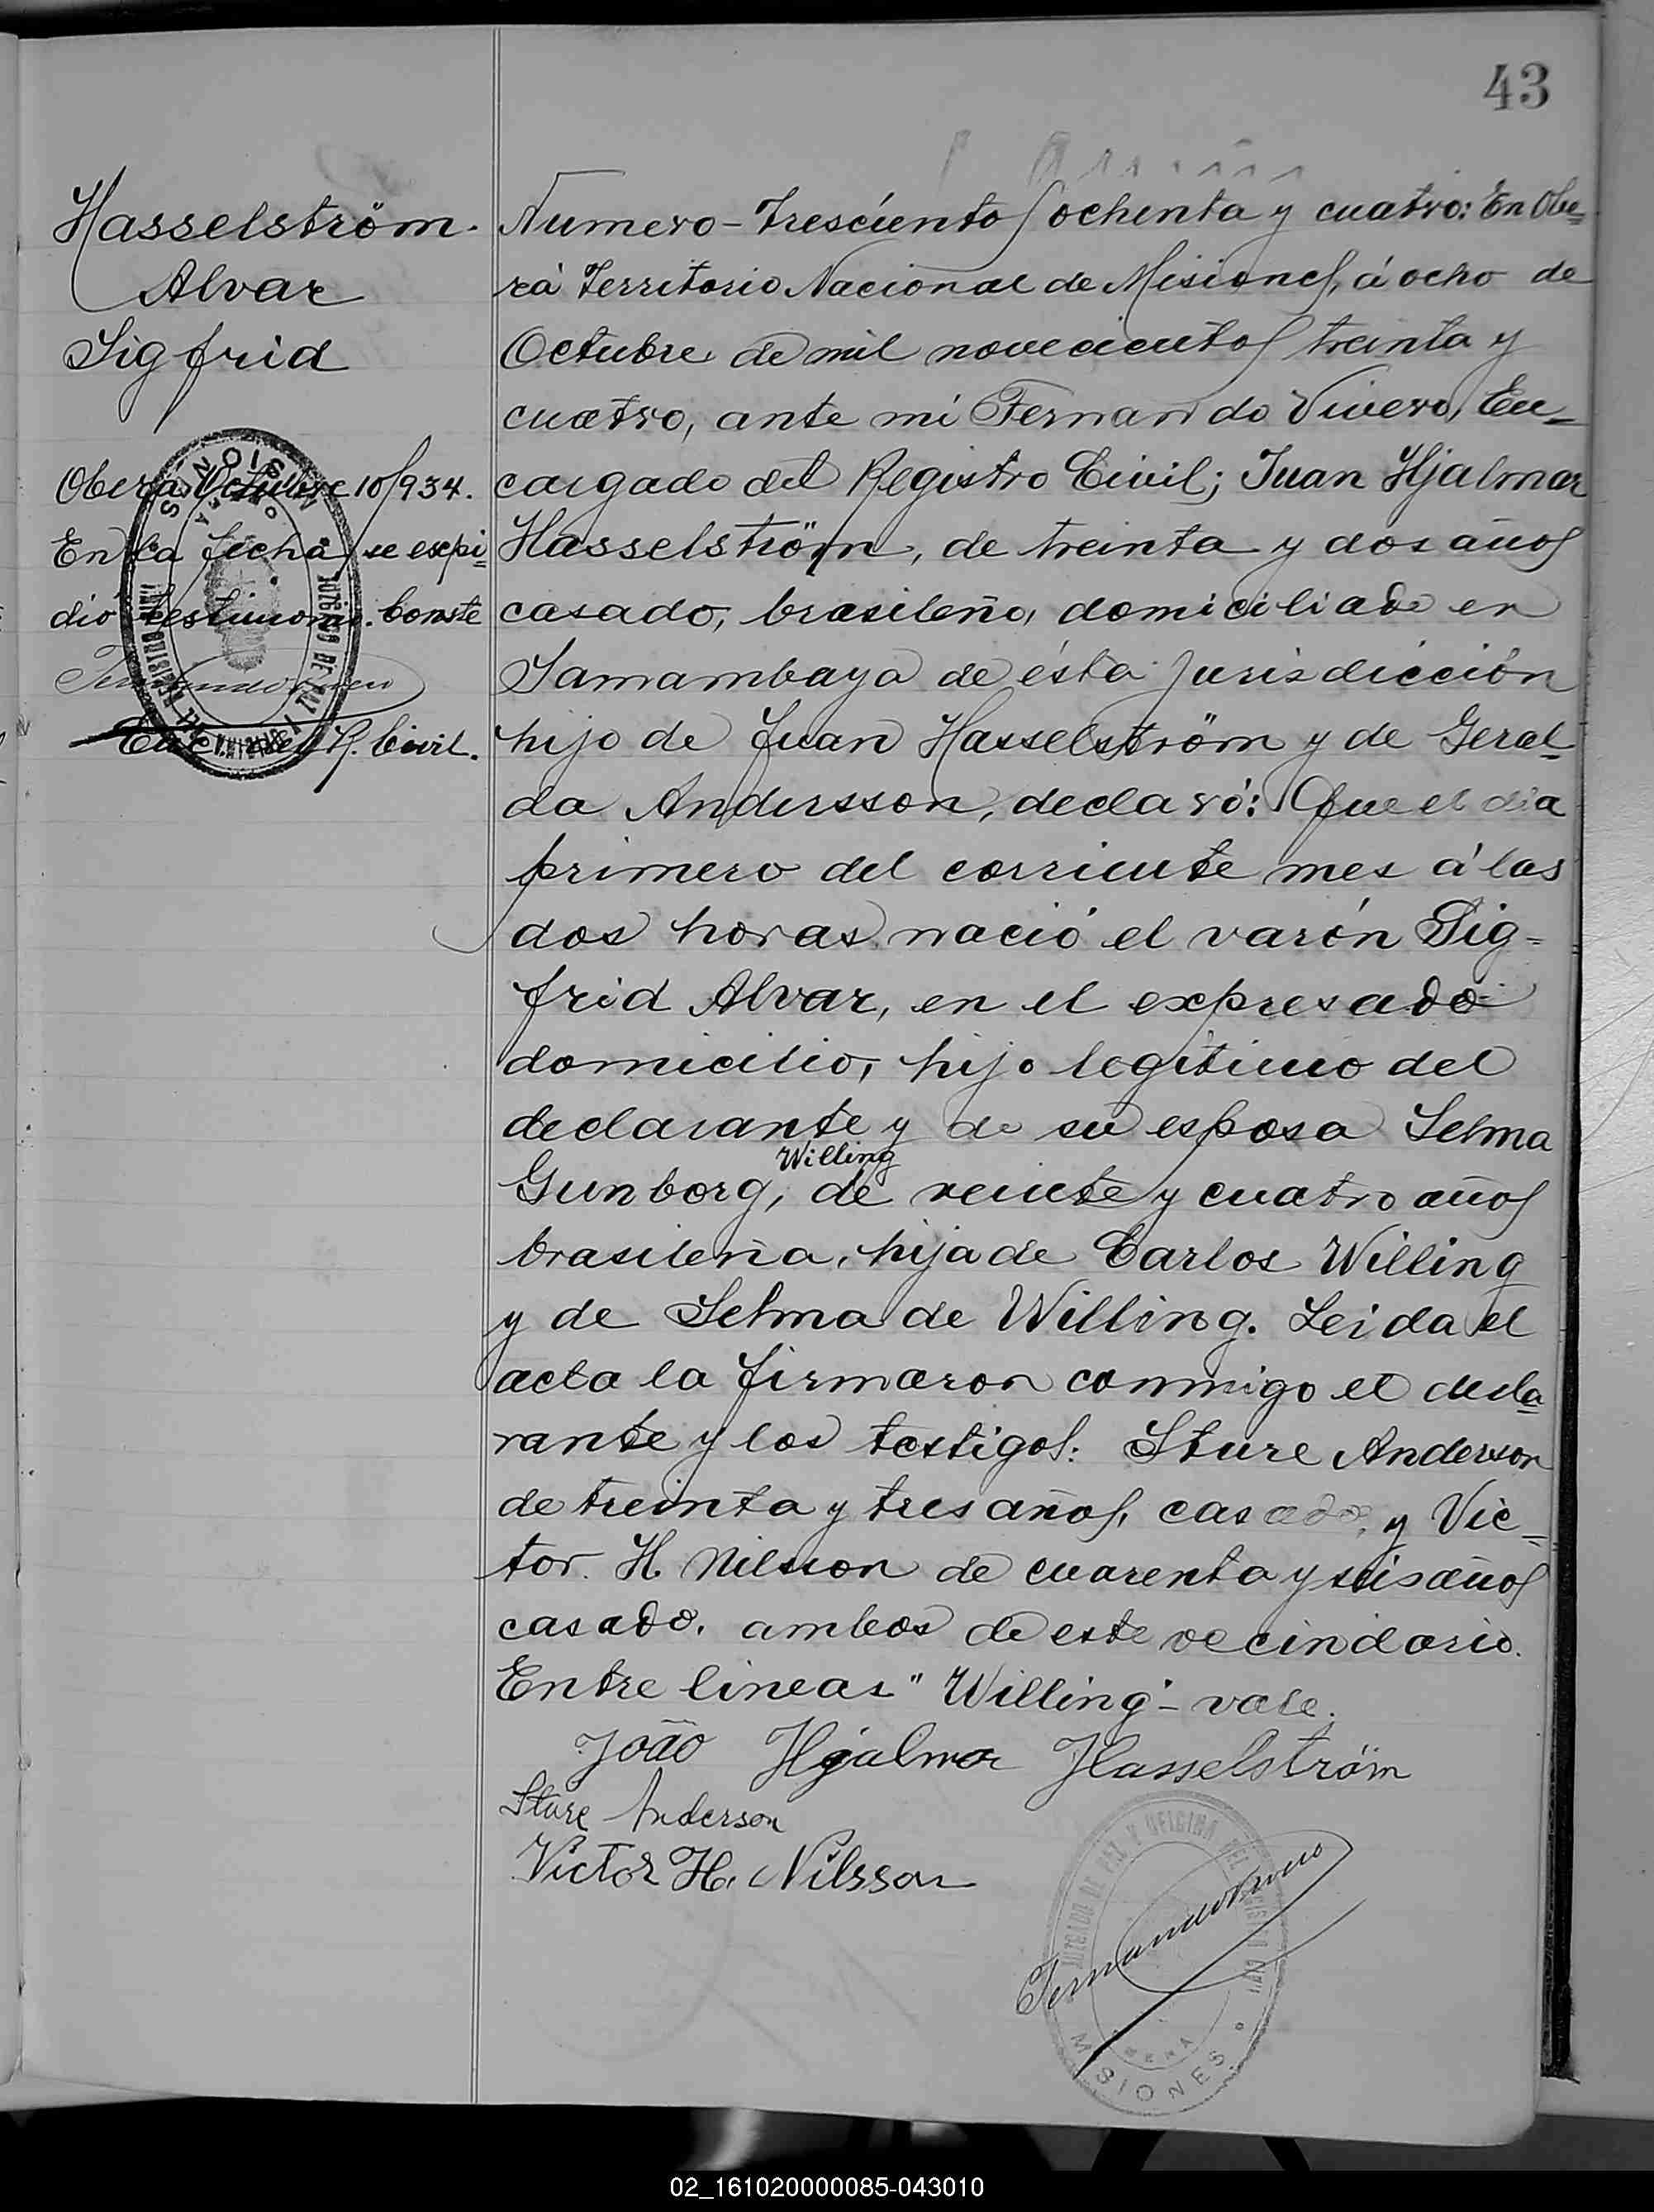 43
Hasselström.
Alvar
Sigfrid
Oberá, Octubre 10/934.
En la fecha se expi=
dió testimonio. Conste
Enc. del R. Civil.
Numero-Tresciéntos ochenta y cuatro: En Obe=
rá Territorio Nacional de Misiones, á ocho de
Octubre de mil novecientos treinta y
cuatro, ante mi Fernando Vivero, En=
cargado del Registro Civil; Juan Hjalmar
Hasselström, de treinta y dos años
casado, brasileño, domiciliado en
Samambaya de ésta Jurisdicción
hijo de Juan Hasselström y de Geral=
da Andersson, declaró: Que el dia
primero del corriente mes á las
dos horas nació el varón Sig=
frid Alvar, en el expresado
domicilio, hijo legitimo del
declarante y de su esposa Selma
Willing
Gunborg, de veinte y cuatro años
brasileña, hija de Carlos Willing
y de Selma de Willing. Leida el
acta la firmaron conmigo el decla=
rante y los testigos: Sture Anderson
de treinta y tres años, casado, y Vic=
tor. H. Nilsson de cuarenta y seis años
casado. ambos de este vecindario.
Entre lineas "Willing"- vale.
João Hjalmar Hasselström
Sture Anderson
Victor H. Nilsson
Fernando Vivero
JUZGADO DE PAZ Y OFICINA DEL REGISTRO CIVIL
MISIONES
02_161020000085-043010